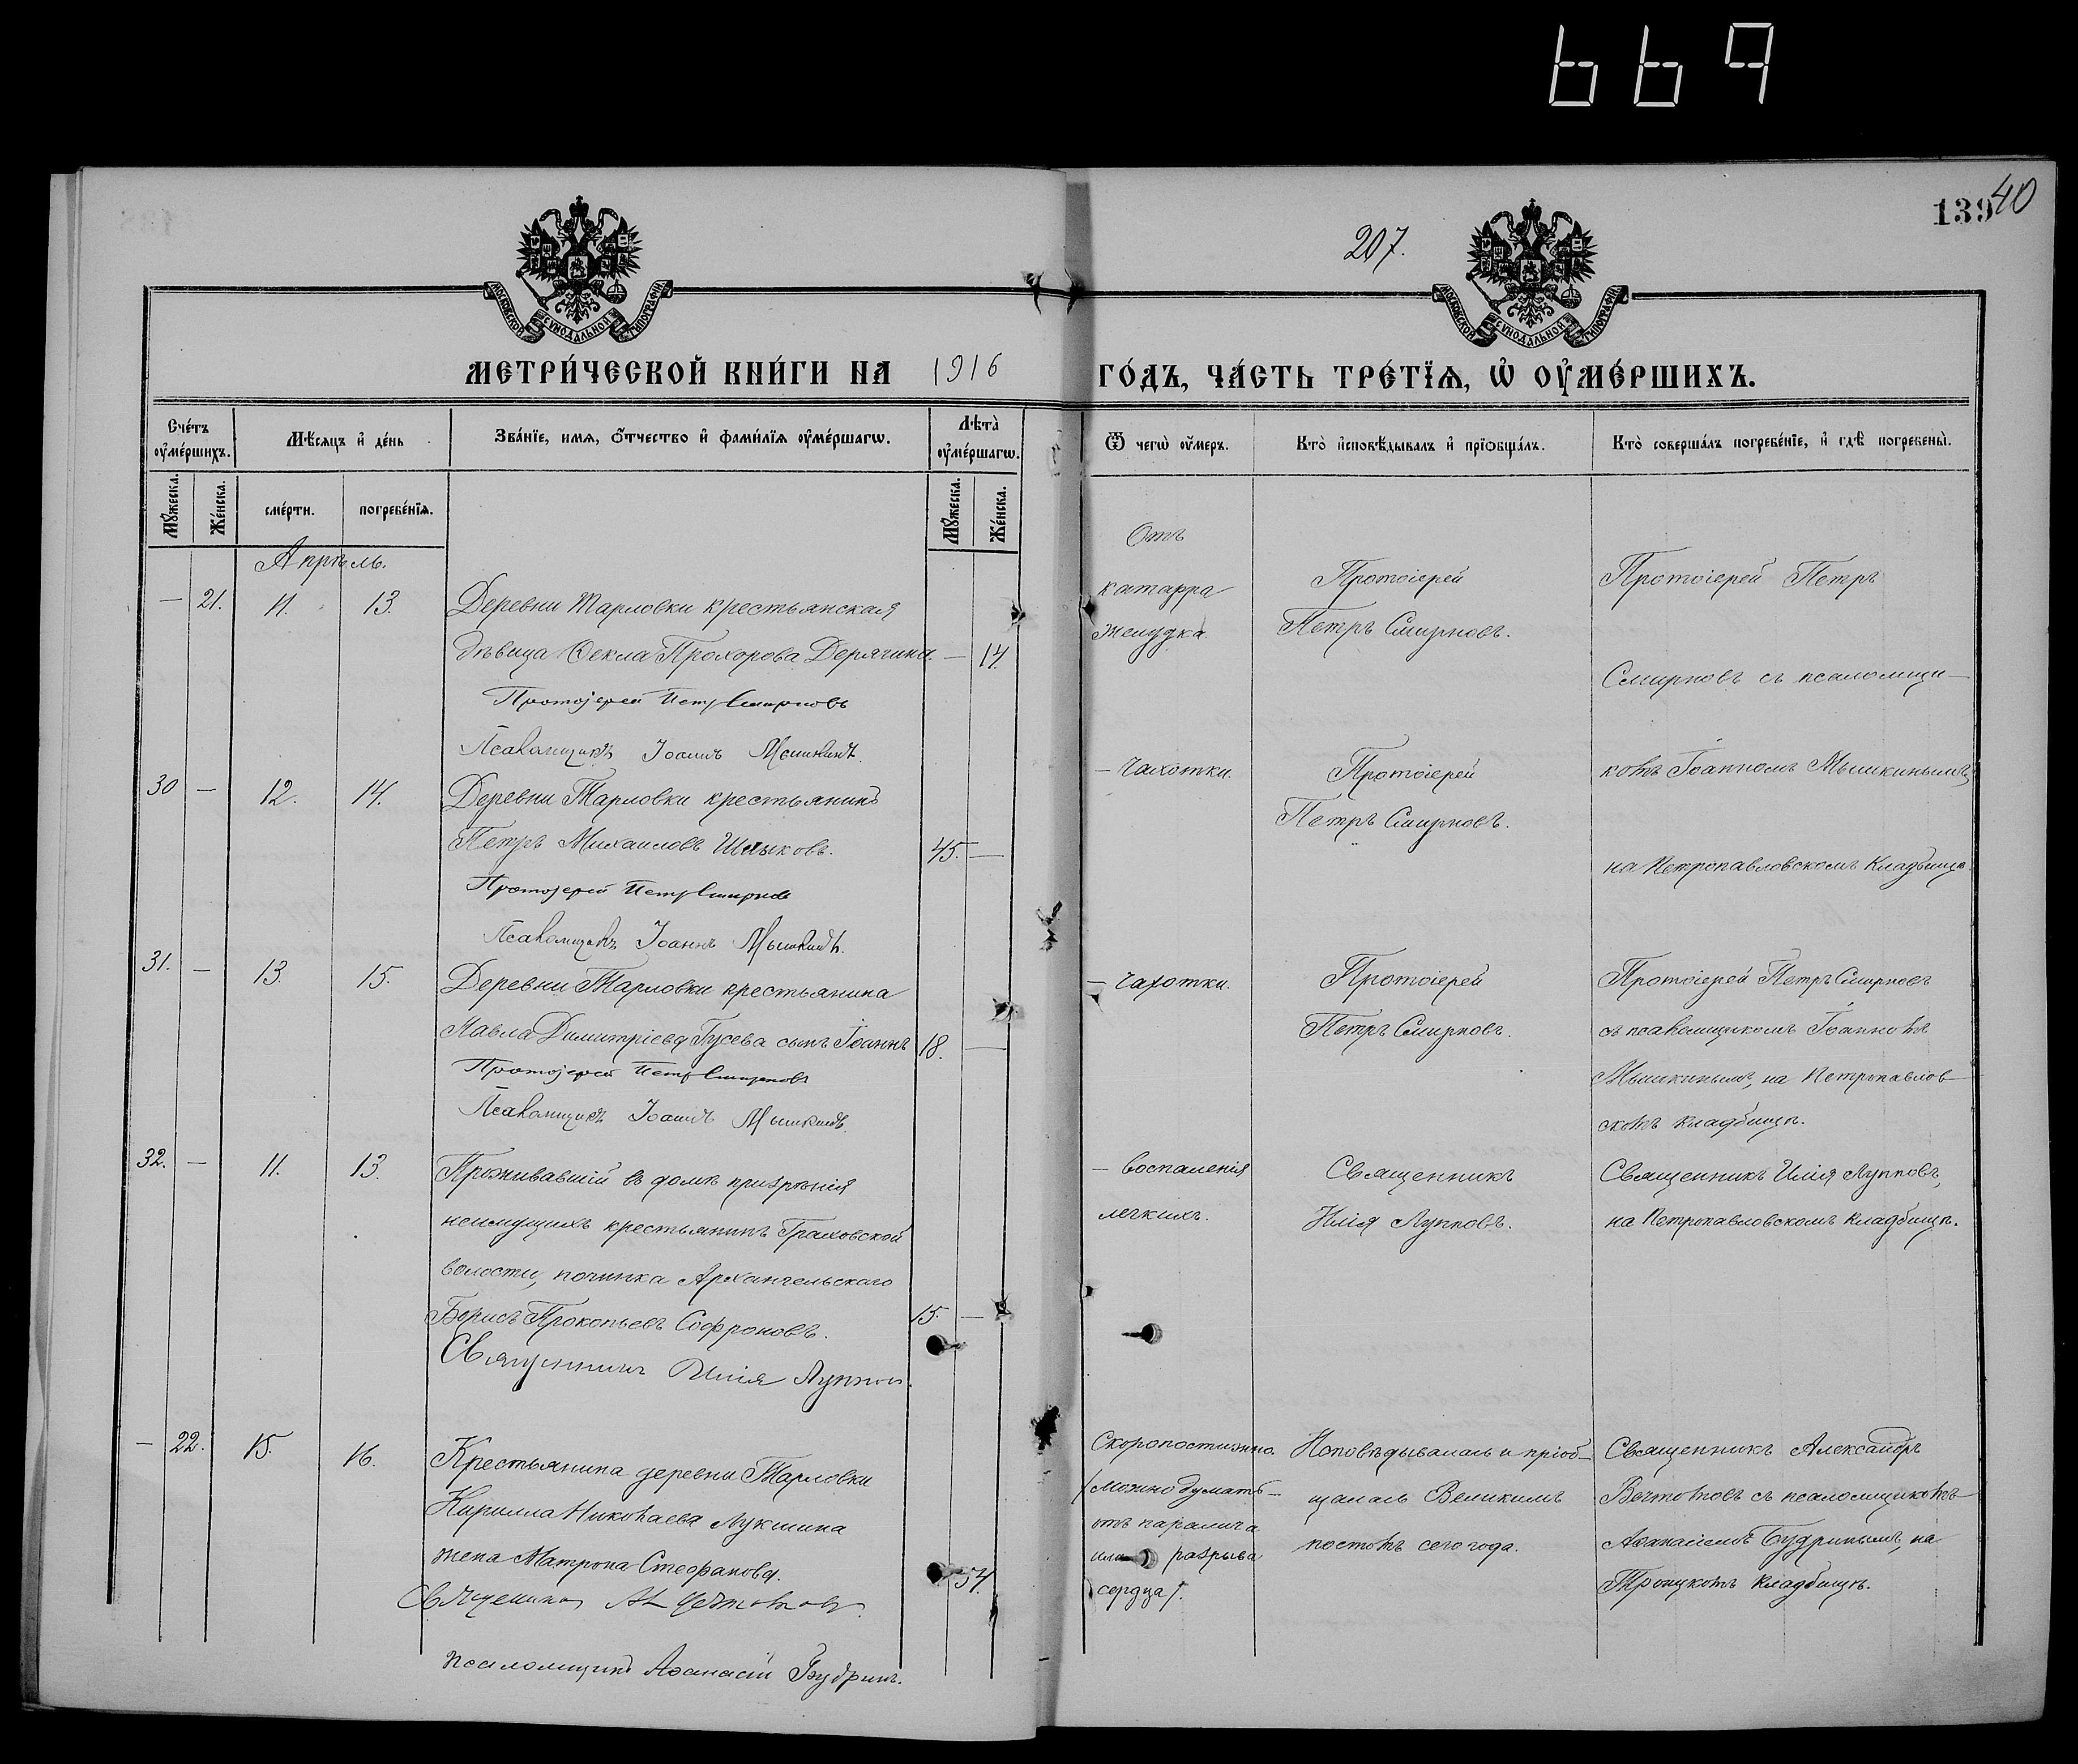 669
13940
207.
МОСКОВСКОЙ СѴНОДАЛЬНОЙ ТИПОГРАФІИ
МОСКОВСКОЙ СѴНОДАЛЬНОЙ ТИПОГРАФІИ
МЕТРИ́ЧЕСКОЙ КНИ́ГИ НА 1916 ГО́ДЪ, ЧА́СТЬ ТРЕ́ТЇѦ, Ѡ҆ ОУ҆МЕ́РШИХЪ.
Сче́тъ оу҆ме́ршихъ.
Мѣ́сѧцъ и҆ де́нь
Зва́нїе, имѧ, ѻ҆́тчество и҆ фами́лїѧ оу҆ме́ршагѡ.
Лѣ̀та оу҆ме́ршагѡ.
Ѿ чегѡ̀ оу҆́меръ.
Кто̀ и҆сповѣ́дывалъ и҆ прїѻбща́лъ.
Кто̀ соверша́лъ погребе́нїе, и҆ гдѣ̀ погребены̀.
Мꙋ́жеска.
Же́нска.
сме́рти.
погребе́нїѧ.
Мꙋ́жеска.
Же́нска.
Апрѣль.
— 21. 11. 13. Деревни Тарловки крестьянская
дѣвица Ѳекла Прохорова Дерягина. — 14
Протоіерей Петръ Смирновъ
Псаломщикъ Іоаннъ Мышкинъ.
Отъ
катарра
желудка.
Протоіерей
Петръ Смирновъ.
Протоіерей Петръ
Смирновъ съ псаломщи-
комъ Іоанномъ Мышкинымъ,
на Петропавловскомъ кладбищѣ.
30 — 12. 14. Деревни Тарловки крестьянинъ
Петръ Михаиловъ Шлыковъ. 45. —
Протоіерей Петръ Смирновъ
Псаломщикъ Іоаннъ Мышкинъ.
— Чахотки.
Протоіерей
Петръ Смирновъ.
31. — 13. 15. Деревни Тарловки крестьянина
Павла Димитріева Гусева сынъ Іоаннъ 18. —
Протоіерей Петръ Смирновъ
Псаломщикъ Іоаннъ Мышкинъ.
— Чахотки.
Протоіерей
Петръ Смирновъ.
Протоіерей Петръ Смирновъ
съ псаломщикомъ Іоанномъ
Мышкинымъ, на Петропавлов-
скомъ кладбищѣ.
32. — 11. 13. Проживавшій въ домѣ призрѣнія
неимущихъ крестьянинъ Граховской
волости, починка Архангельскаго
Борисъ Прокопьевъ Софроновъ. 15. —
Священникъ Илія Лупповъ.
— воспаленія
легкихъ.
Священникъ
Илія Лупповъ.
Священникъ Илія Лупповъ,
на Петропавловскомъ кладбищѣ.
— 22. 15. 16. Крестьянина деревни Тарловки
Кирилла Николаева Лукшина
жена Матрона Стефанова. 54.
Священникъ Ал
псаломщикъ Аѳанасій Будринъ.
Скоропостижно.
/можно думать—
отъ паралича
или разрыва
сердца/.
Исповѣдывалась и пріоб-
щалась Великимъ
постомъ сего года.
Священникъ Александръ
съ псаломщикомъ
Аѳанасіемъ Будринымъ, на
Троицкомъ кладбищѣ.